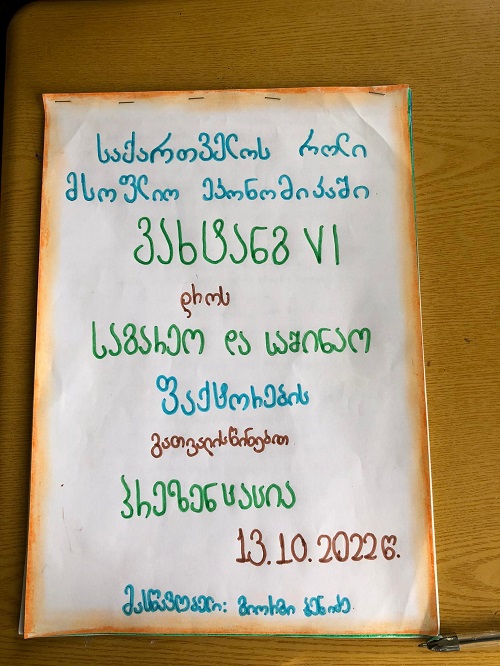 საქართველოს როლი
მსოფლიო ეკონომიკაში
ვახტანგ VI
დროს
საგარეო და საშინაო
ფაქტორების
გათვალისწინებით
პრეზენტაცია
13.10.2022წ.
მასწავლებელი: გიორგი კენიძე